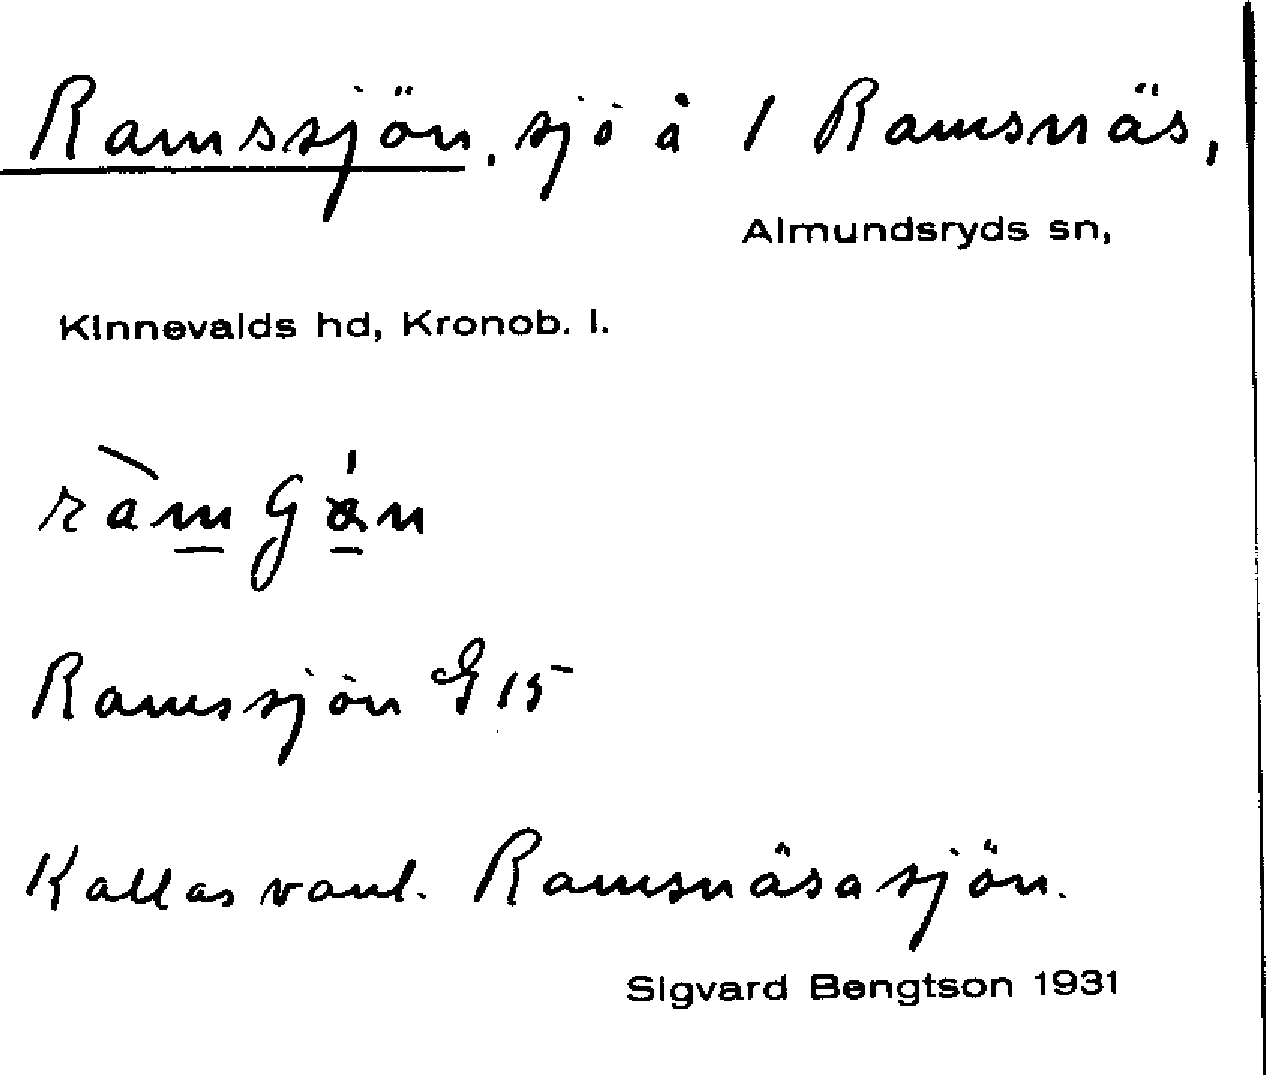 Ramssjön, sjö å 1 Ramsnäs,
Almundsryds sn,
Kinnevalds hd, Kronob. l.
Ramssjön G 15
Kallas vanl. Ramsnäsasjön.
Sigvard Bengtson 1931